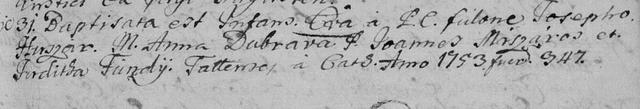 31. Baptisata est Infans. Eva à P.C. filone Josepho
Huszar. M. Anna Dubrava. P. Joannes Miszaros et.
Juditha Fundÿ. Tallenses à Cath. Anno 1753 fuer. 347.